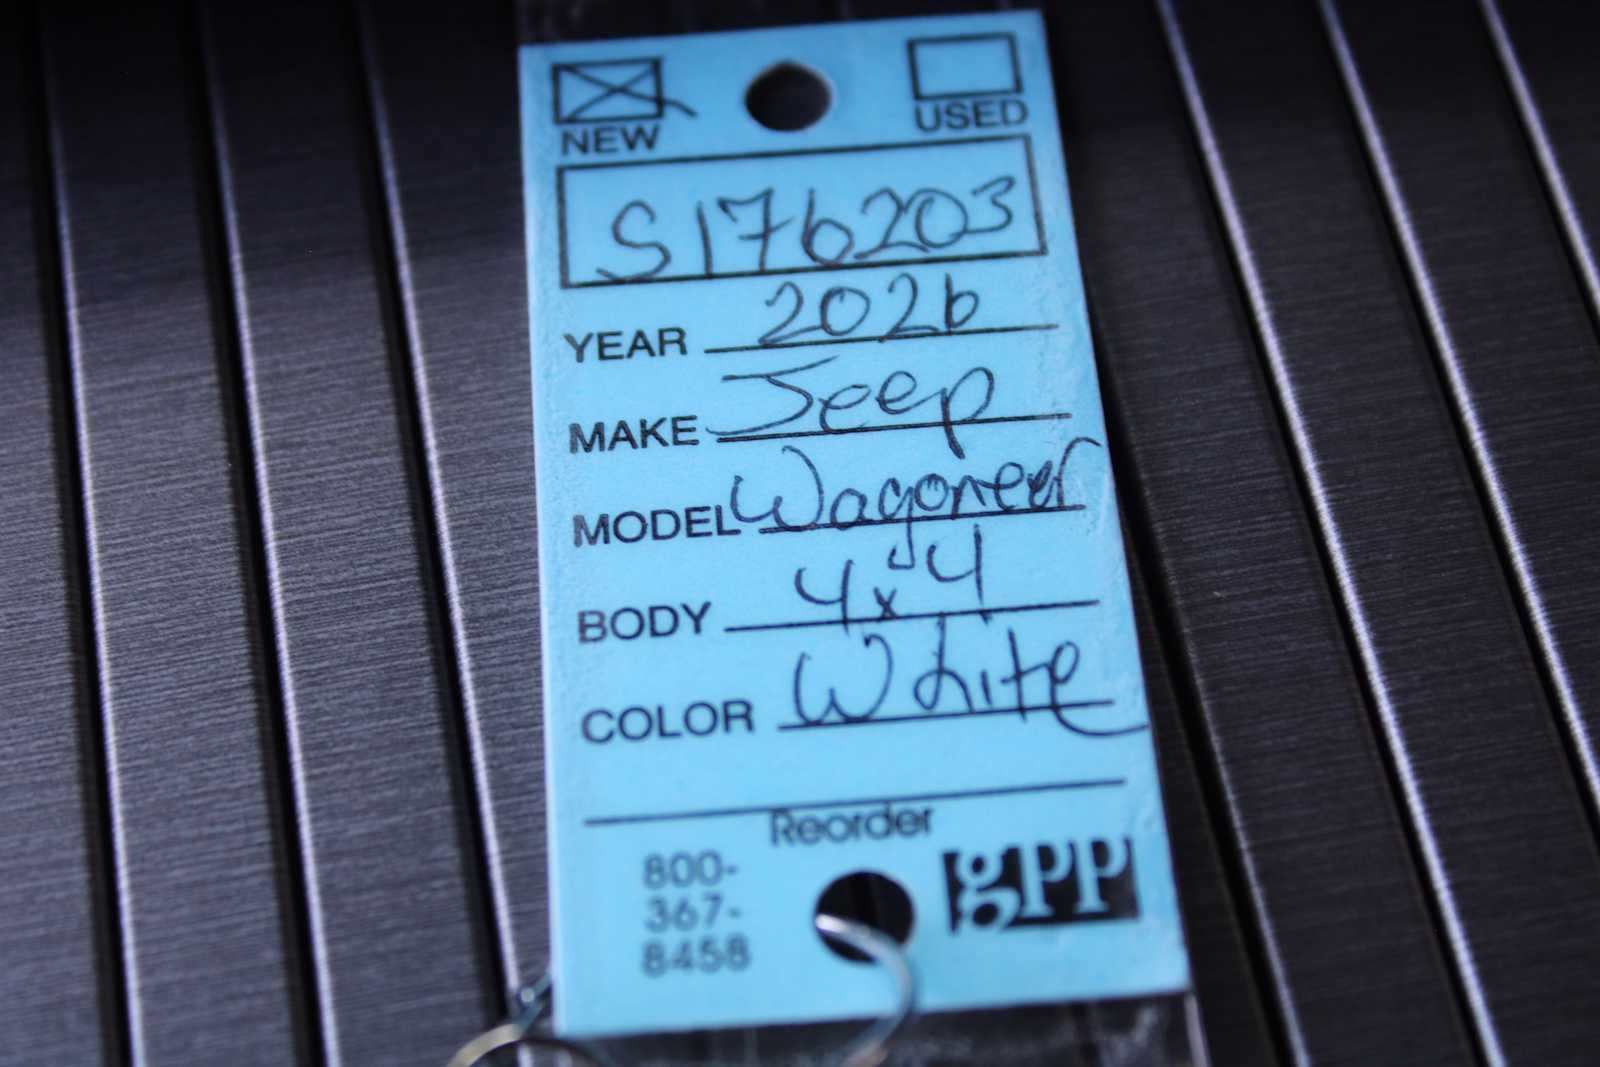 NEW USED
S176203
YEAR 2026
MAKE Jeep
MODEL Wagoneer
BODY 4x4
COLOR White
Reorder
800-
367-
8458
gPP